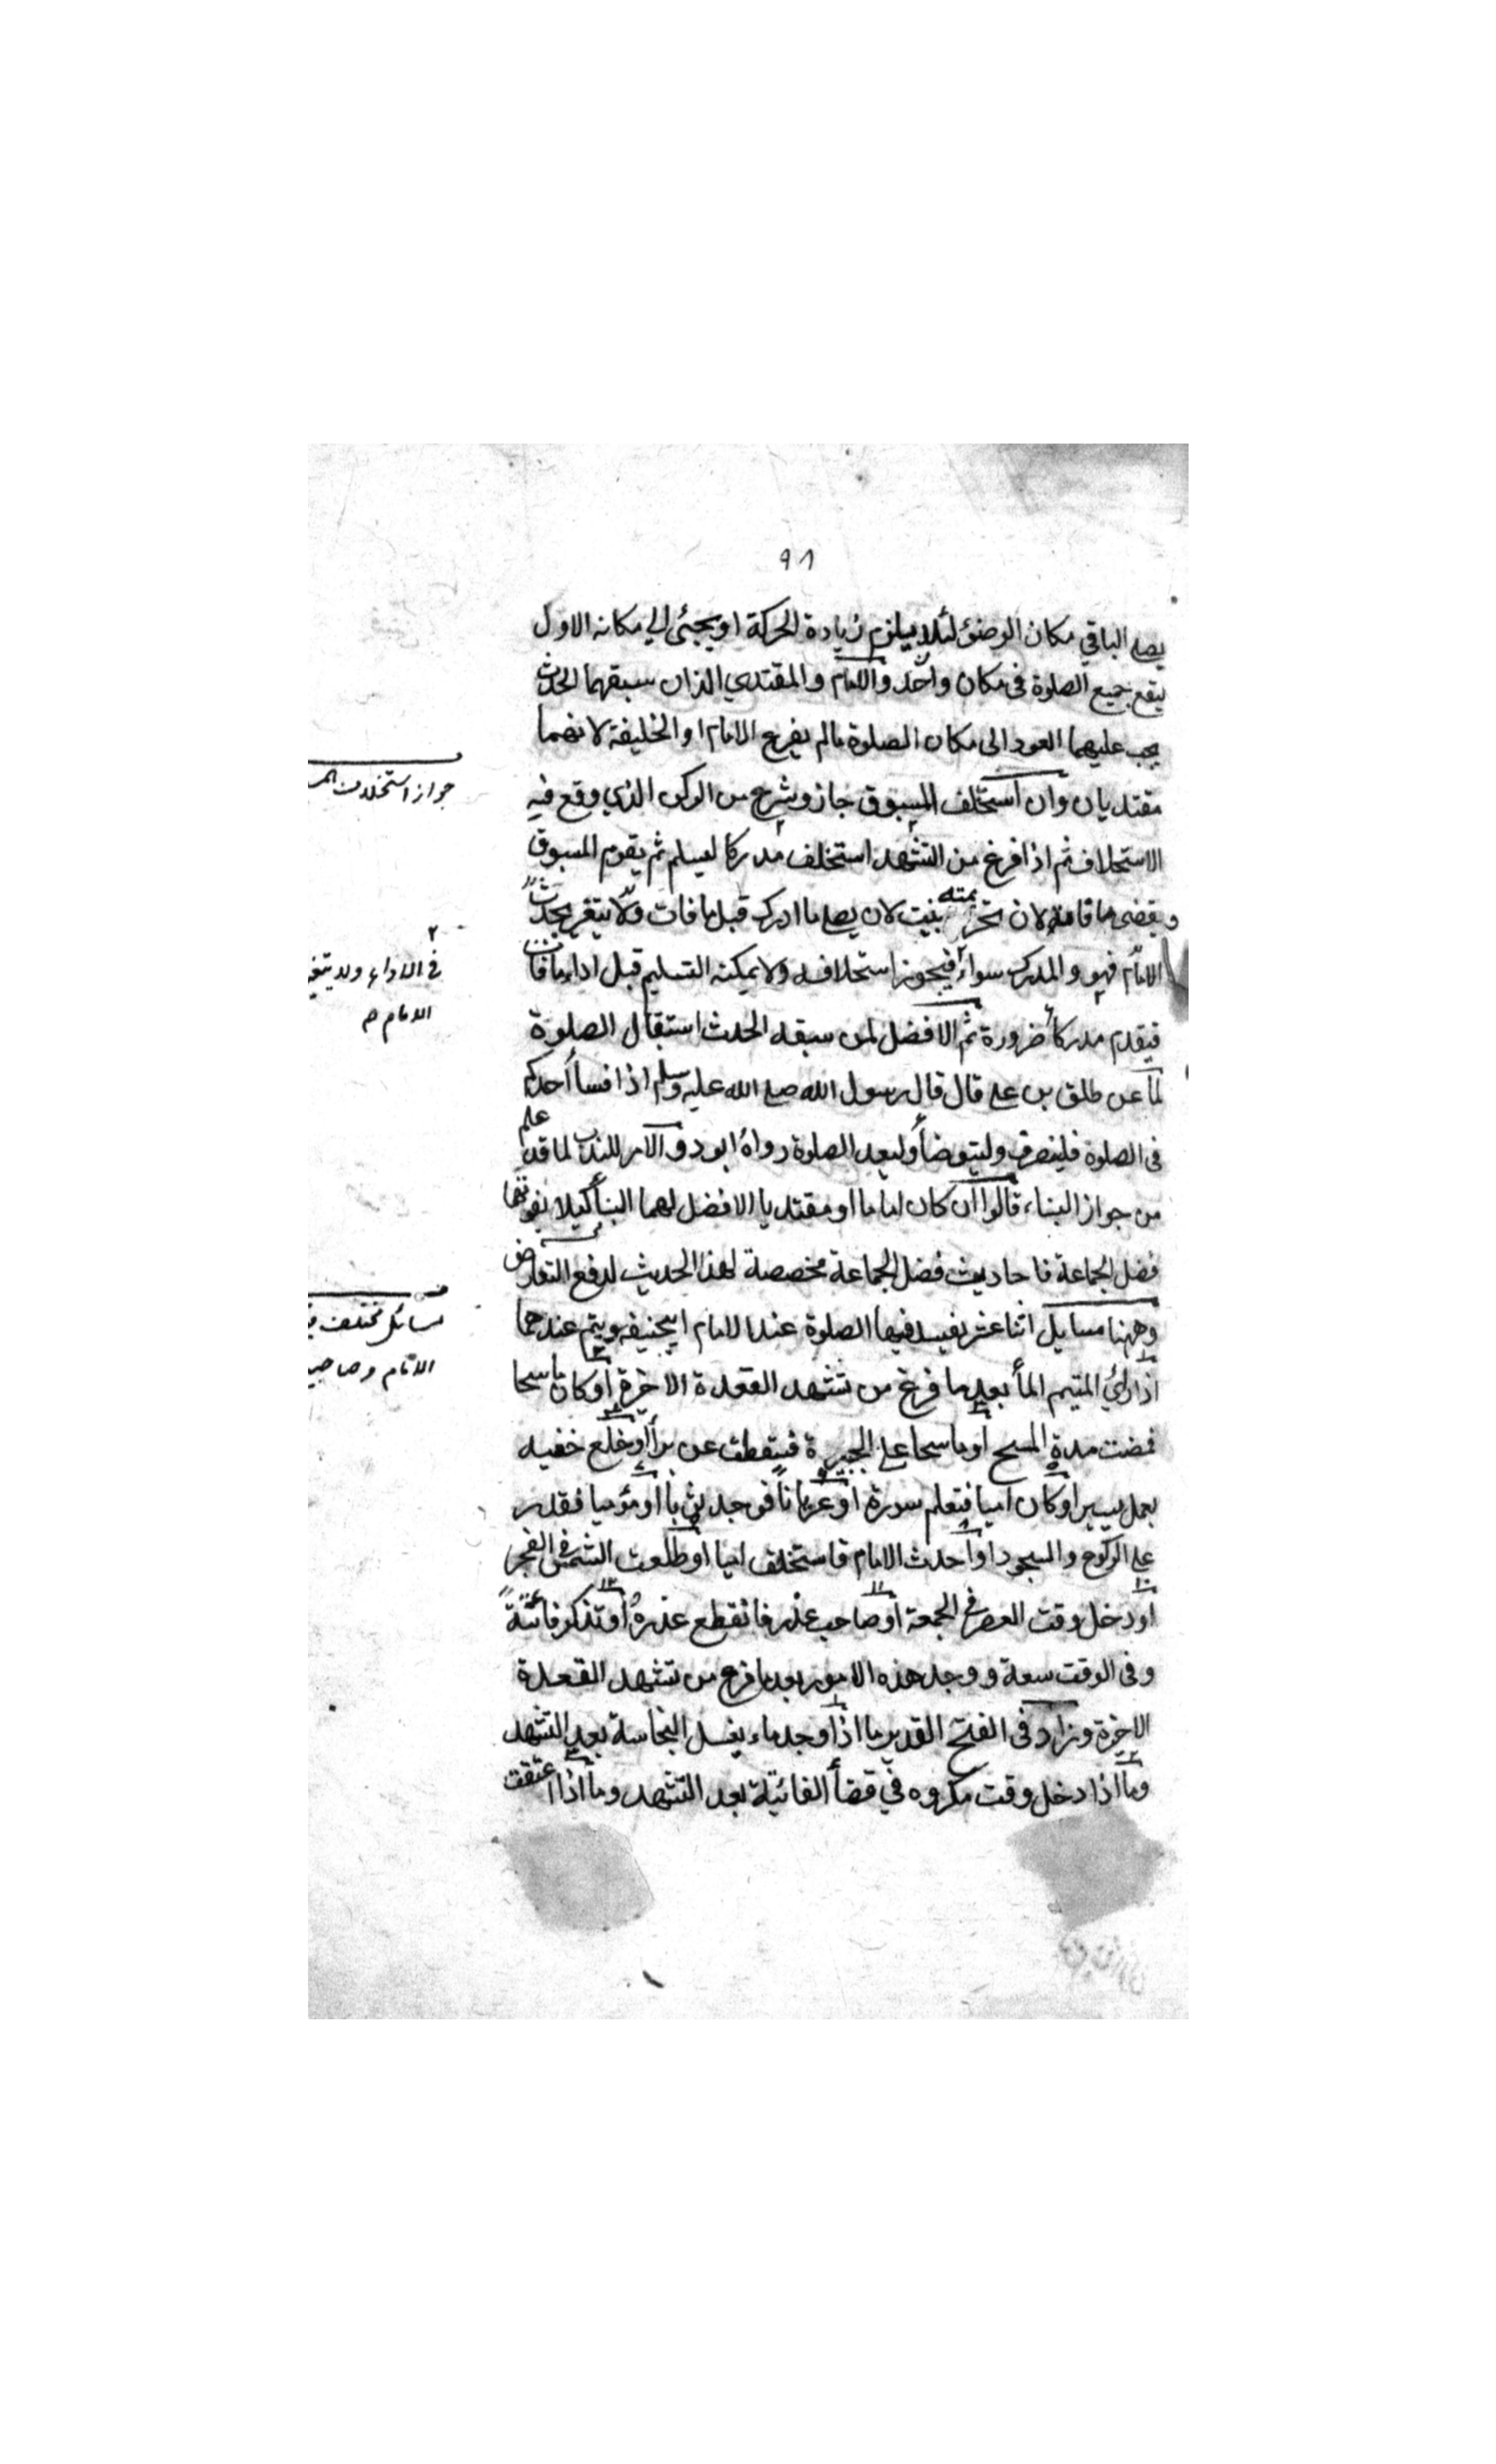 ٩٨
يصلي الباقي مكان الوضؤ لئلا يلزم زيادة الحركة او يجئ الي مكانه الاول
ليقع جميع الصلوة في مكان واحد والامام والمقتدي الذان سبقهما الحدث
يجب عليهما العود الى مكان الصلوة مالم يفرغ الامام او الخليفة لانهما
مقتديان وان استخلف المسبوق جاز وشرع من الركن الذي وقع فيه
جواز استخلاف
الاستخلاف ثم اذا فرغ من التشهد استخلف مدركا ليسلم ثم يقوم المسبوق
ويقضى ما فاته لان تحريمته بنيت لان يصلي ما ادرك قبل ما فات ولا يتغير بحدث
الامام فهو والمدرك سواء فيجوز استخلافه ولا يمكنه التسليم قبل اداء ما فات
٢
في الاداء ولا يتغير
الامام م
فيقدم مدركا ضرورة ثم الافضل لمن سبقه الحدث استقبال الصلوة
لما عن طلق بن علي قال قال رسول الله صلى الله عليه وسلم اذا فسا أحدكم
في الصلوة فلينصرف وليتوضأ وليعد الصلوة رواه ابو دو والامر للندب لما قد علم
من جواز البناء، قالوا ان كان اماما او مقتديا الافضل لهما البنأ كيلا يفوتهما
فضل الجماعة فاحاديث فضل الجماعة مخصصة لهذا الحديث لدفع التعارض
وههنا مسايل اثنا عشر يفسد فيها الصلوة عند الامام ابيحنيفه ويتم عندهما
مسائل مختلف
الامام وصاحبي
اذا رائ المتيم المأ بعد ما فرغ من تشهد القعدة الاخرة او كان ماسحا
فمضت مدة المسح او ماسحا علي الجبيرة فسقطت عن برأ او خلع خفيه
بعمل يسير او كان اميا فتعلم سورة او عريانا فوجد ثوبا او مؤميا فقدر
علي الركوع والسجود او احدث الامام فاستخلف اميا او طلعت الشمس في الفجر
او دخل وقت العصر في الجمعة او صاحب عذر فانقطع عذره او تذكر فائتة
وفى الوقت سعة ووجد هذه الامور بعد ما فرغ من تشهد القعدة
الاخرة وزاد في الفتح القدير ما اذا وجد ماء يغسل النجاسة بعد التشهد
وما اذا دخل وقت مكروه في قضأ الفائية بعد التشهد وما اذا اعتقت